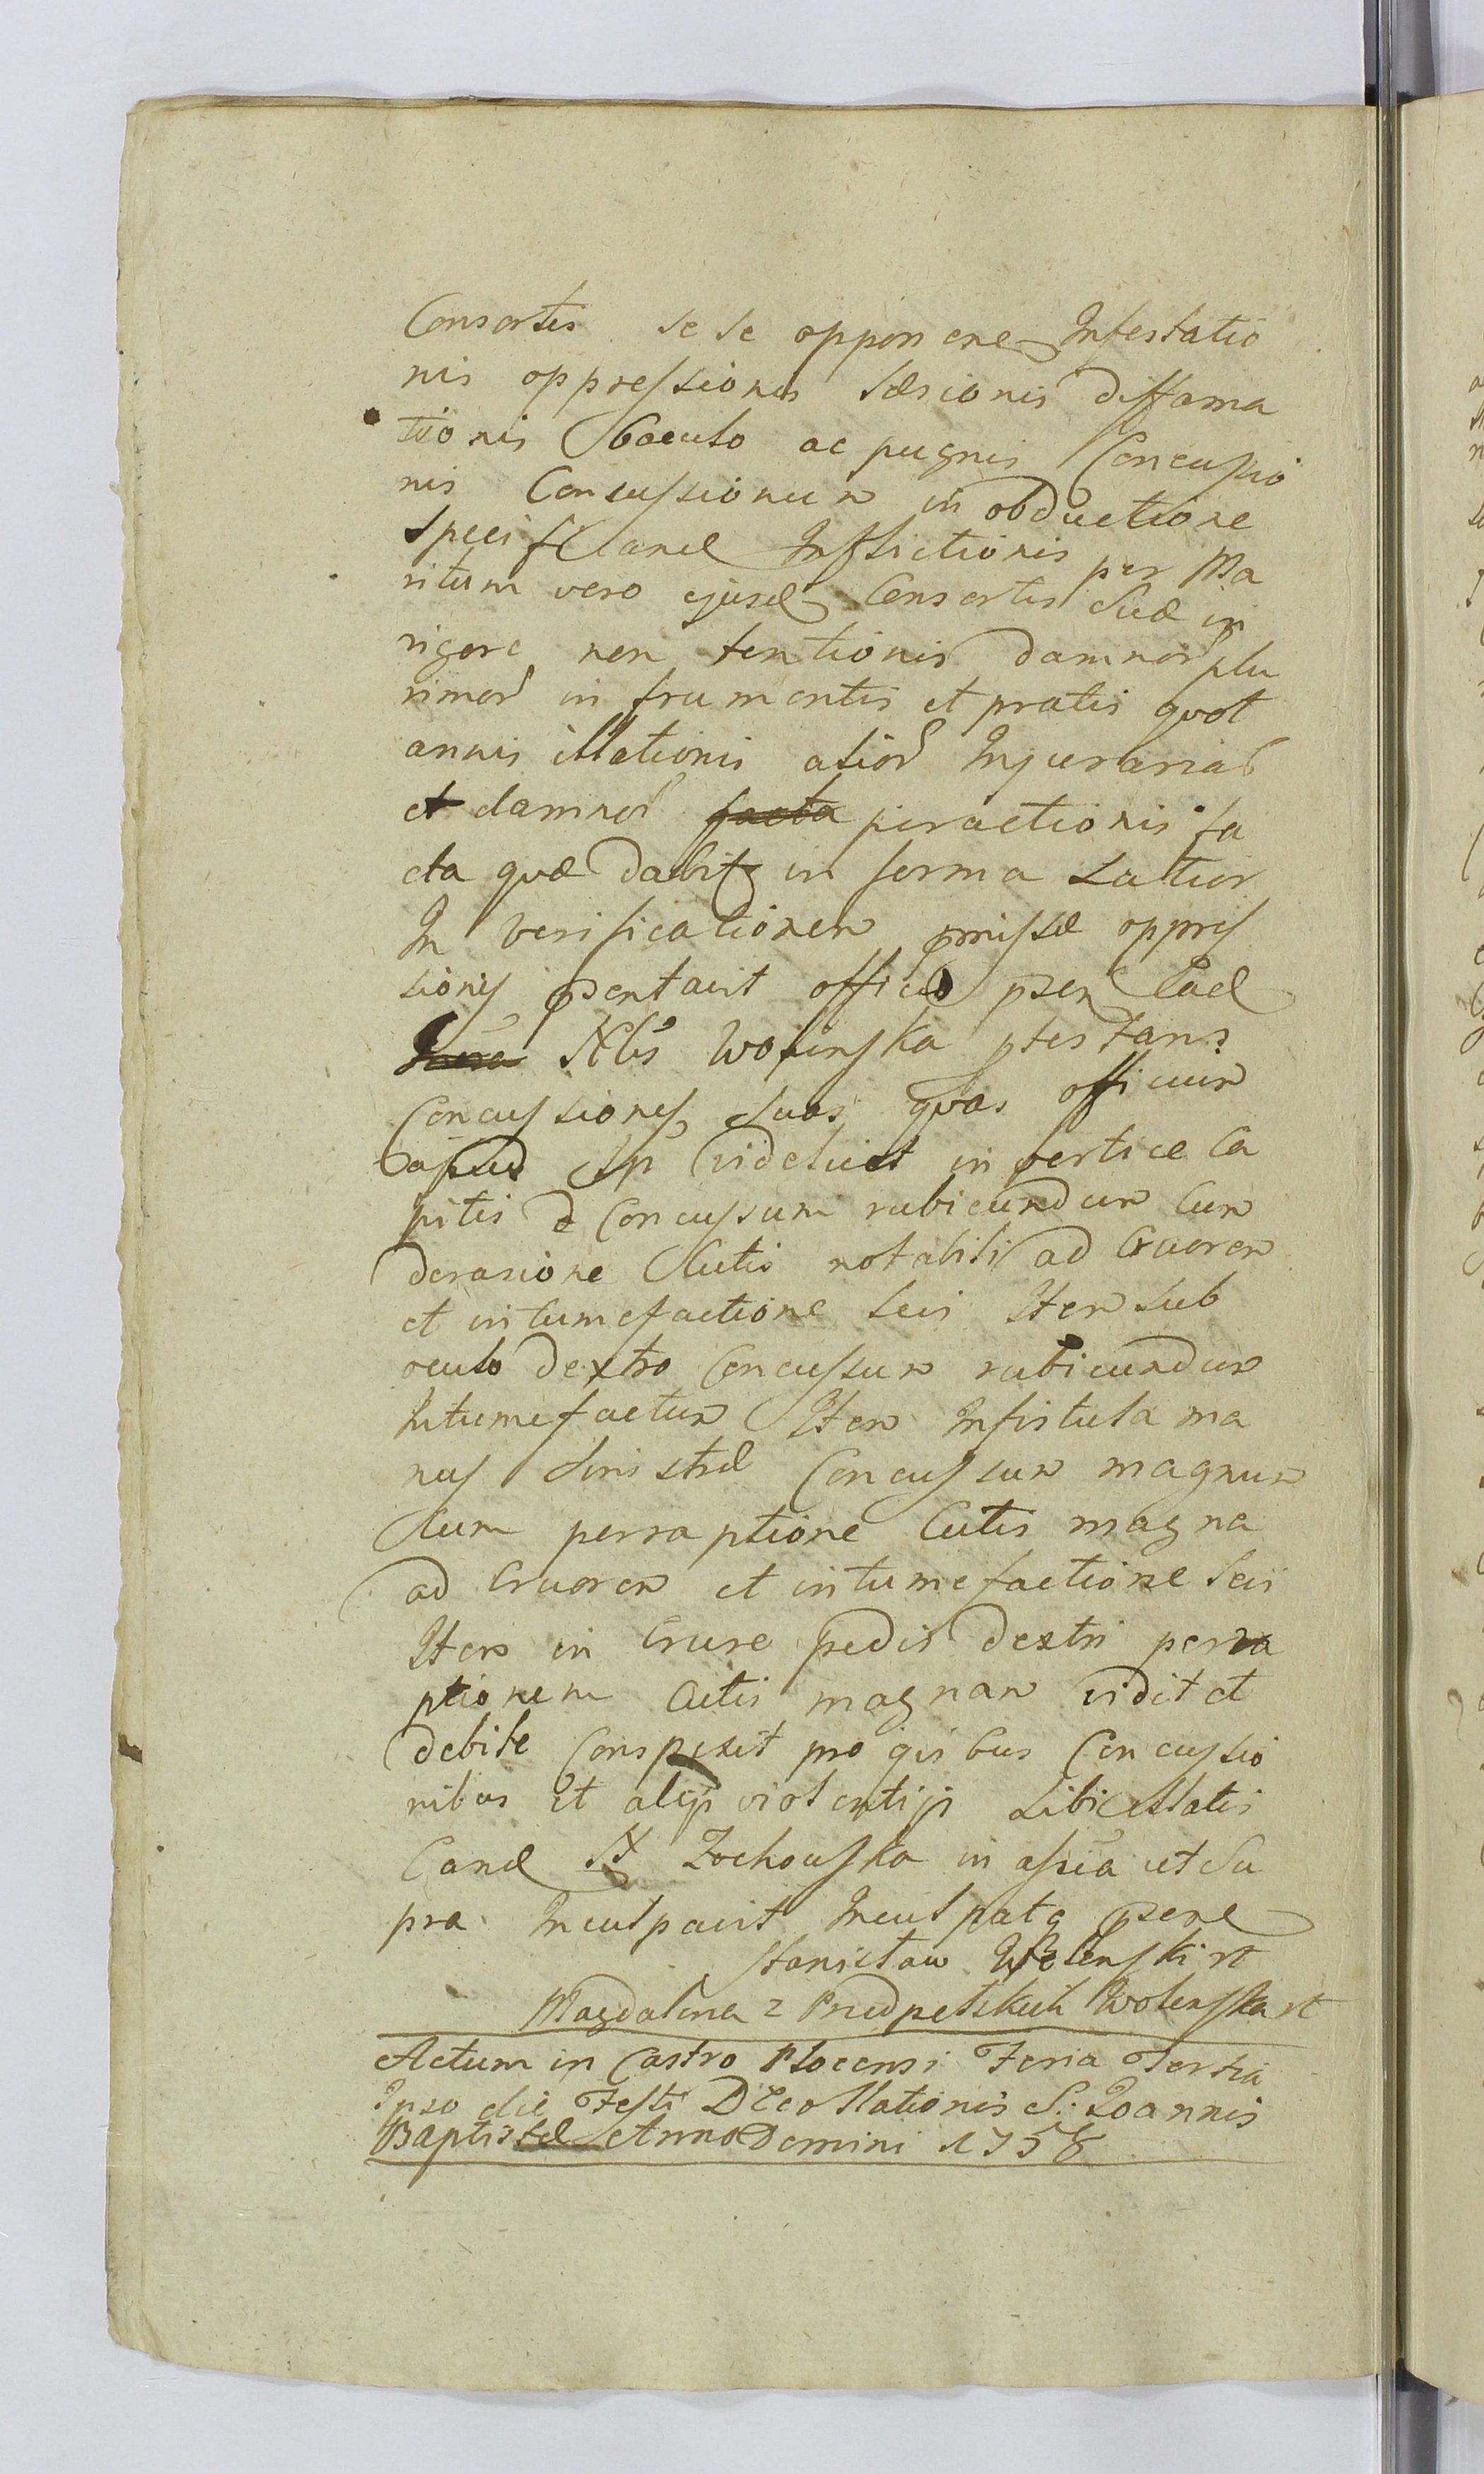 Consortis sese opponere Infestatio
nis oppressionis Læsionis diffama
tionis baculo ac pugnis Concussio
nis Concussionum in obductione
specificand Inflictionis per Ma
ritum vero ejusd Consortis suæ in
rigore non tentionis damnor plu
rimor in frumentis et pratis quot
annis illationis alior Injuriar
et damnor facta peractionis fa
cta quæ dabit in forma Latior
In verificationem pmissæ oppres
sionis psentavit officio psen Ead
Nbis Wolinska ptestans
Concussiones suas quas officium
videlicet in vertice Ca
pitis Concussum rubicundum Cum
derasione Cutis notabili ad Cruorem
et intumefactione Loci Item sub
oculo dextro Concussum rubicundum
Intumefactum Item Infistula ma
nus sinistræ Concussum magnum
Cum perraptione Cutis magna
ad Cruorem et intumefactione Loci
Item in Crure pedis dextri perra
ptionem Cutis magnam vidit et
debite Conspexit pro qis bus Concussio
nibus et alijs violentijs Libellatis
Eand N Zochowska in assia ut Su
pra Inculpavit Inculpatq psene
Stanisław Wolenski rt
Magdalena z Wolenska rt
Actum in Castro Plocensi Feria Tertia
Ipso die Festi Decollationis S. Joannis
Baptistæ Anno Domini 1758